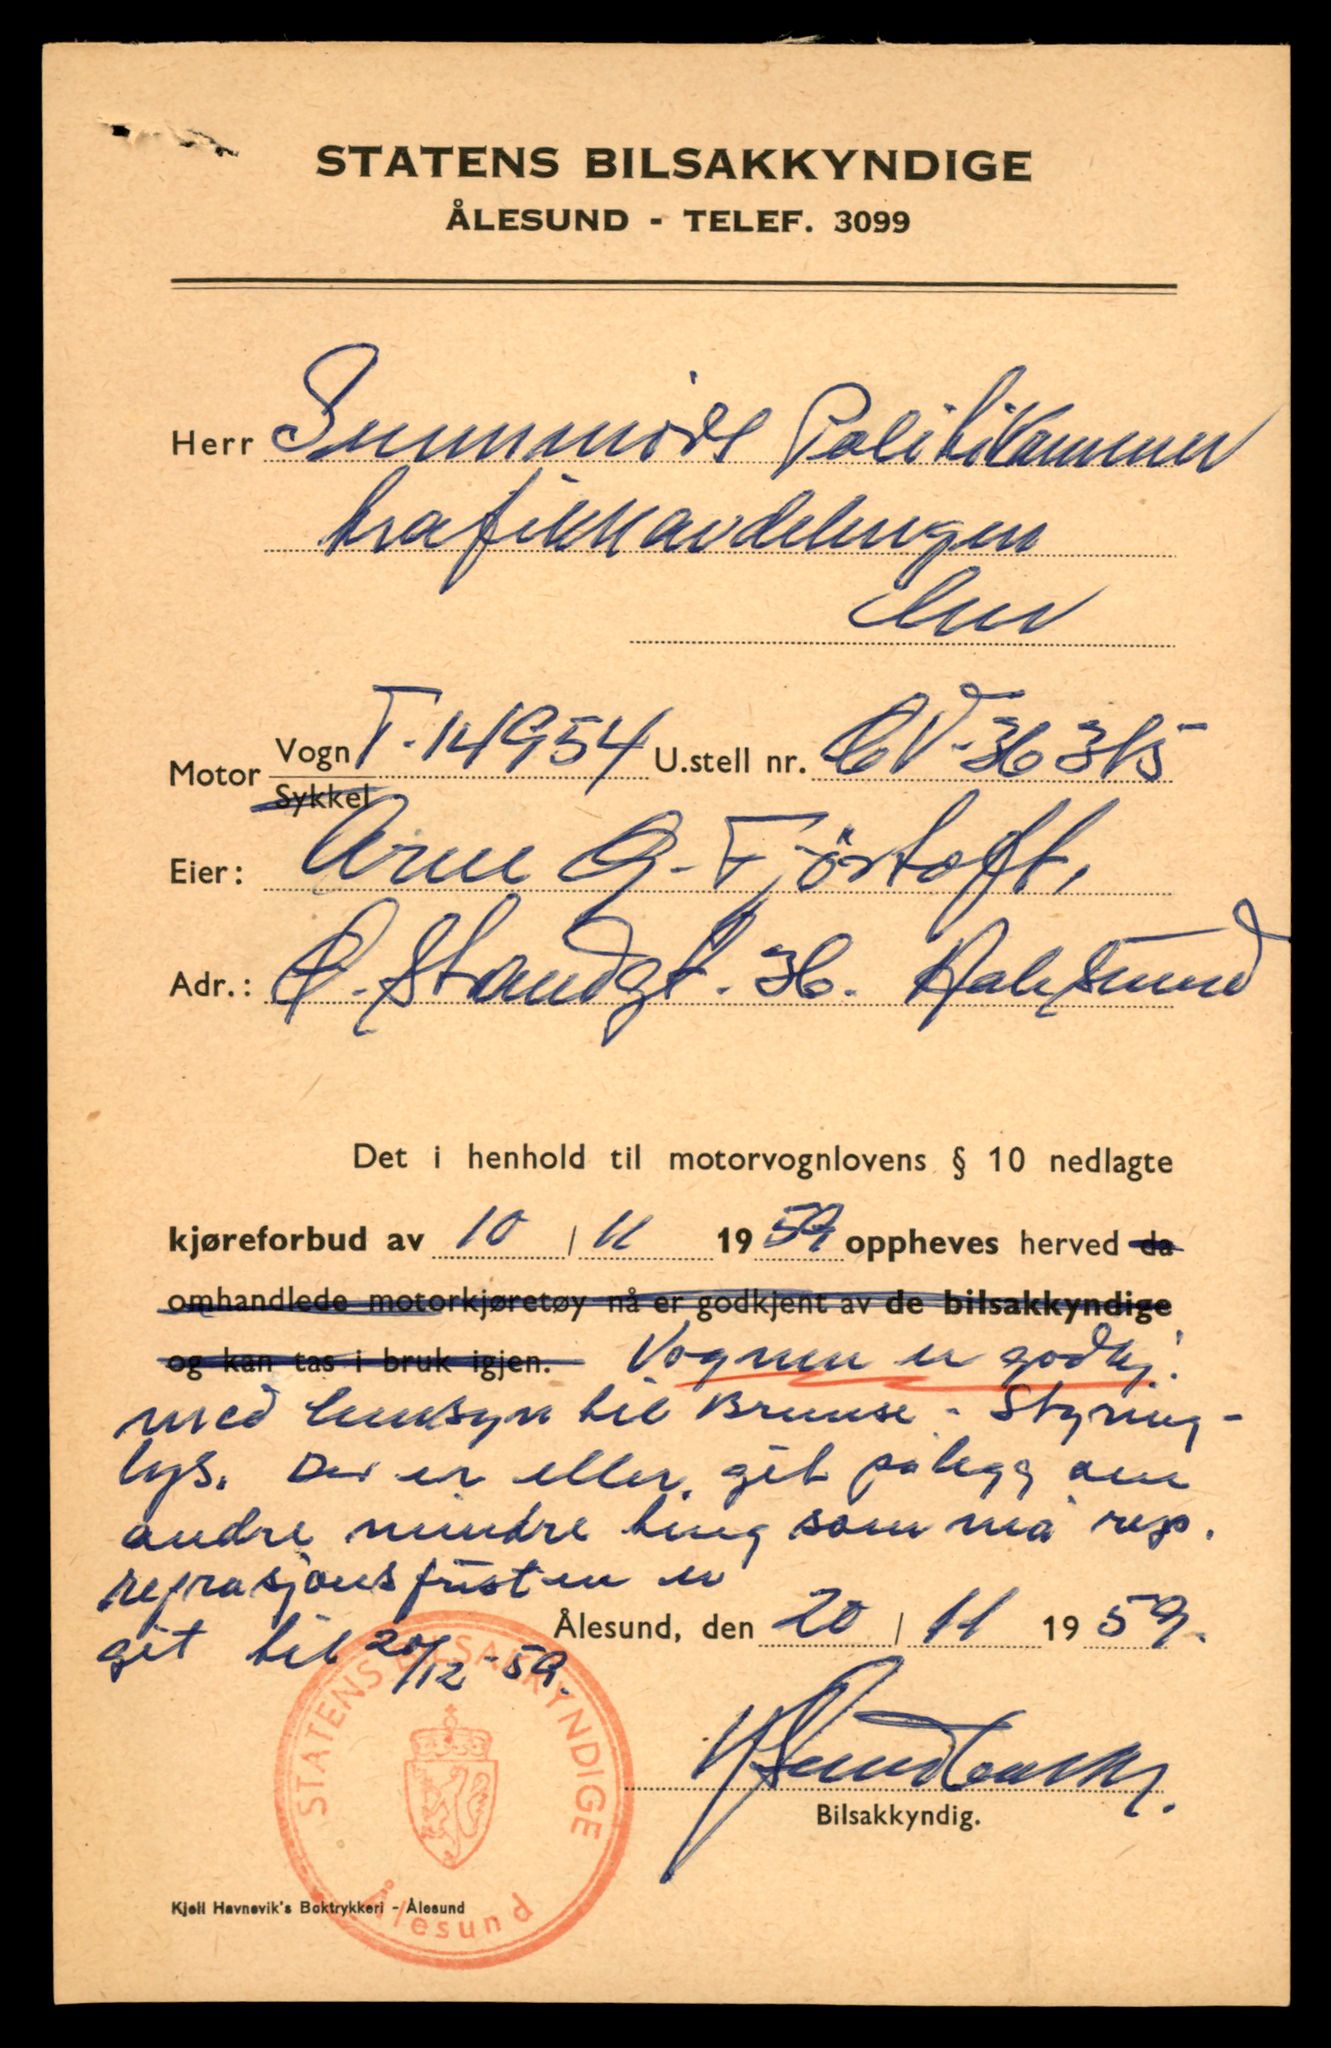 STATENS BILSAKKYNDIGE
ÅLESUND - TELEF. 3099
Herr Sunnmöre Politikammer
trafikkavdelingen
her
Motor Vogn T-14954 U.stell nr. CV-36315
Sykkel
Eier: Arne G. Fjörtoft,
Adr.: Ö. Strandgt. 36. Aalesund
Det i henhold til motorvognlovens § 10 nedlagte
kjøreforbud av 10 / 11 1959 oppheves herved da
omhandlede motorkjøretøy nå er godkjent av de bilsakkyndige
og kan tas i bruk igjen. Vognen er godkj.
med hensyn til Bremse - Styring -
lys. Der er eller. git pålegg om
andre mindre ting som må rep.
reprasjonsfristen er
git til 20/12-59.
Ålesund, den 20 / 11 1959.
Bilsakkyndig.
STATENS BILSAKKYNDIGE
Ålesund
Kjell Havnevik's Boktrykkeri - Ålesund